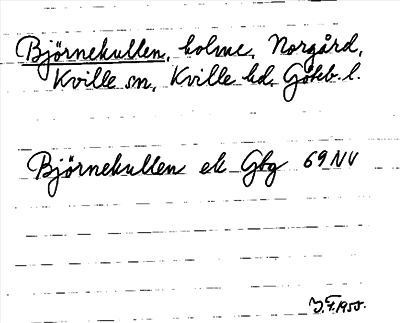 Björnekullen, holme, Norgård,
Kville sn, Kville hd, Göteb. l.
Björnekullen ek Gbg 69 NV
J.F. 1955.